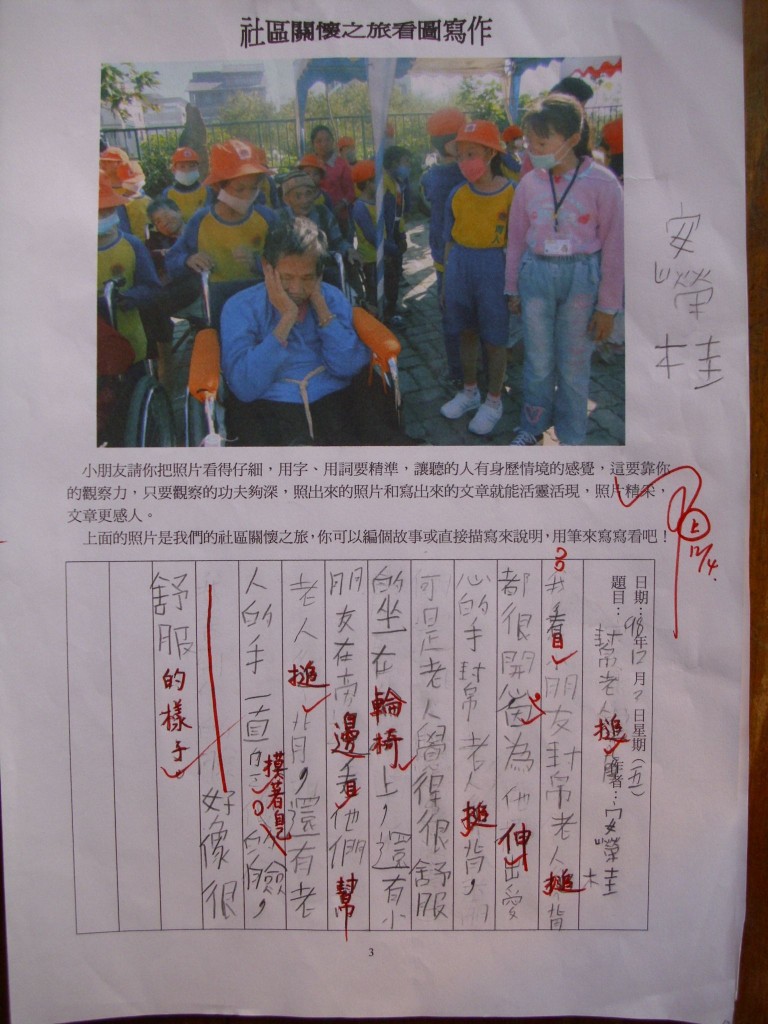 社區關懷之旅看圖寫作
安
嶸
桂
小朋友請你把照片看得仔細，用字、用詞要精準，讓聽的人有身歷情境的感覺，這要靠你
的觀察力，只要觀察的功夫夠深，照出來的照片和寫出來的文章就能活靈活現，照片精采，
文章更感人。
上面的照片是我們的社區關懷之旅，你可以編個故事或直接描寫來說明，用筆來寫寫看吧！
上
12/4
日期：98年12月 日星期（五）
題目：幫老人搥 作者：安嶸桂
我看 朋友封幫老人搥背
都很開 為他 伸出愛
心的手封幫老人搥背，
可是老人覺得很舒服
的坐在輪椅上，還有小
朋友在旁邊看他們幫
老人搥背，還有老
人的手一直 摸著自己的臉，
好像很
舒服的樣子
3